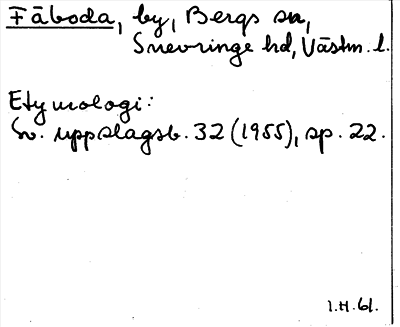 Fäboda, by, Bergs sn,
Snevringe hd, Västm. l.
Etymologi:
Sv. uppslagsb. 32 (1955), sp. 22.
I.H. 61.